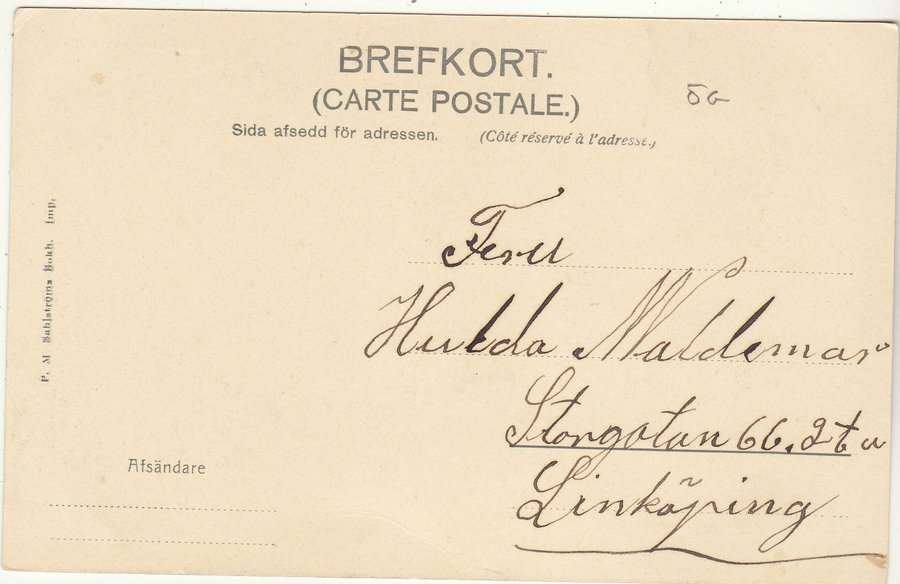 BREFKORT.
(CARTE POSTALE.)
Sida afsedd för adressen. (Côté réservé à l'adresse.)
P. M. Sahlströms Bokh. Imp.
Fru
Hulda Waldemar
Storgatan 66, 2 t u
Linköping
Afsändare